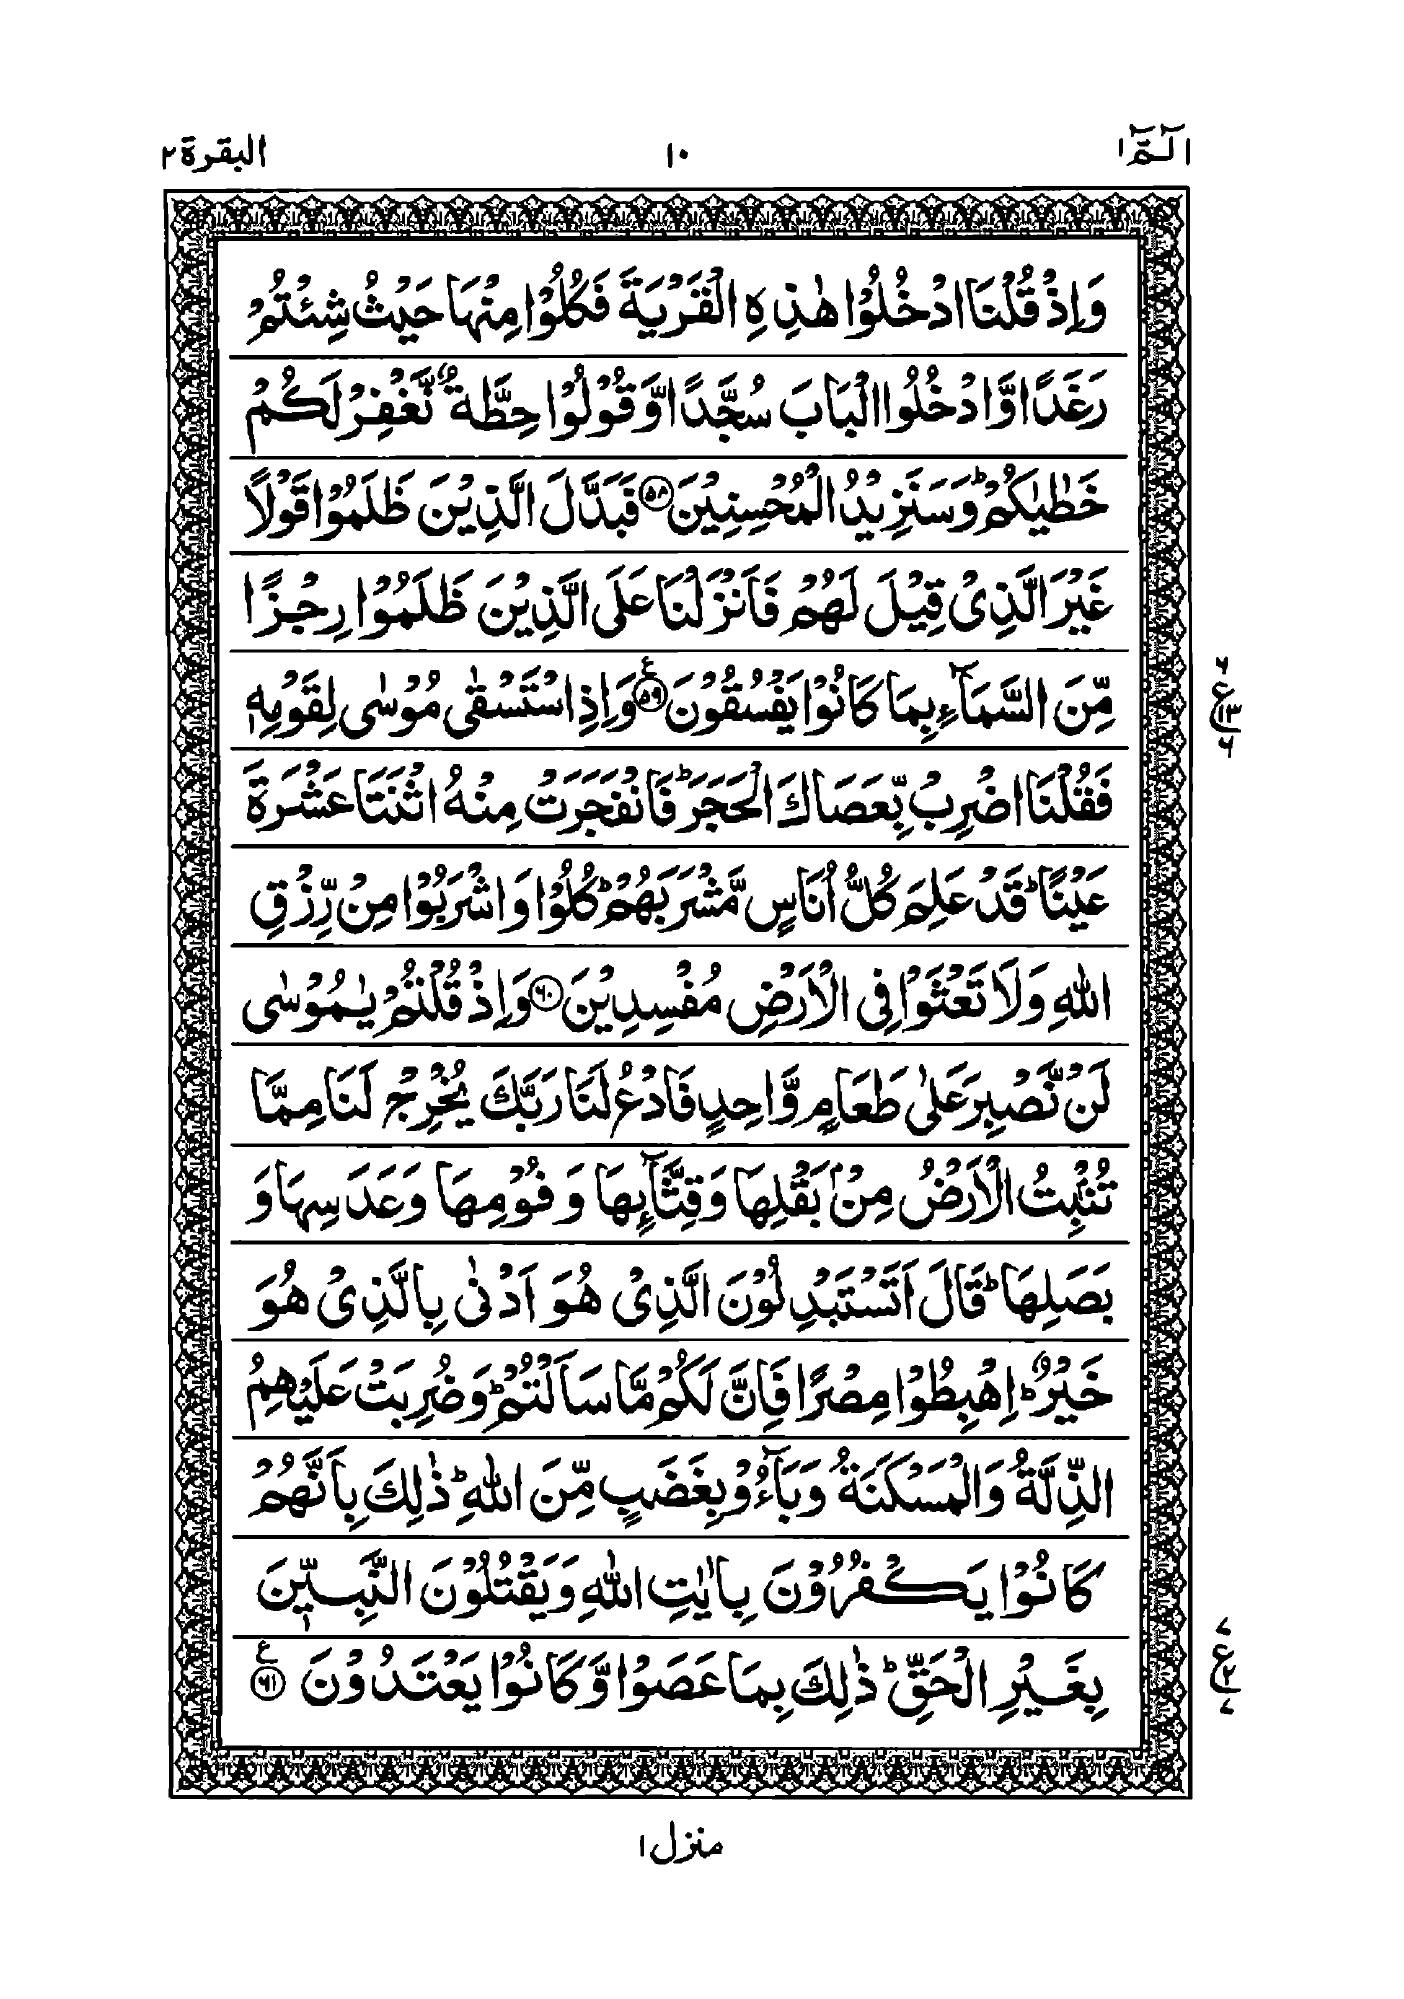 الٓمّٓ ١
١٠
البقرة ٢
وَاِذْ قُلْنَا ادْخُلُوْا هٰذِهِ الْقَرْيَةَ فَكُلُوْا مِنْهَا حَيْثُ شِئْتُمْ
رَغَدًا وَّادْخُلُوا الْبَابَ سُجَّدًا وَّقُوْلُوْا حِطَّةٌ نَّغْفِرْ لَكُمْ
خَطٰيٰكُمْ ؕ وَسَنَزِيْدُ الْمُحْسِنِيْنَ ﴿۵۸﴾ فَبَدَّلَ الَّذِيْنَ ظَلَمُوْا قَوْلًا
غَيْرَ الَّذِىْ قِيْلَ لَهُمْ فَاَنْزَلْنَا عَلَى الَّذِيْنَ ظَلَمُوْا رِجْزًا
مِّنَ السَّمَآءِ بِمَا كَانُوْا يَفْسُقُوْنَ ﴿۵۹﴾ ع وَاِذِ اسْتَسْقٰى مُوْسٰى لِقَوْمِهٖ
فَقُلْنَا اضْرِبْ بِّعَصَاكَ الْحَجَرَ ؕ فَانْفَجَرَتْ مِنْهُ اثْنَتَا عَشْرَةَ
عَيْنًا ؕ قَدْ عَلِمَ كُلُّ اُنَاسٍ مَّشْرَبَهُمْ ؕ كُلُوْا وَاشْرَبُوْا مِنْ رِّزْقِ
اللّٰهِ وَلَا تَعْثَوْا فِى الْاَرْضِ مُفْسِدِيْنَ ﴿۶۰﴾ وَاِذْ قُلْتُمْ يٰمُوْسٰى
لَنْ نَّصْبِرَ عَلٰى طَعَامٍ وَّاحِدٍ فَادْعُ لَنَا رَبَّكَ يُخْرِجْ لَنَا مِمَّا
تُنْۢبِتُ الْاَرْضُ مِنْۢ بَقْلِهَا وَقِثَّآئِهَا وَفُوْمِهَا وَعَدَسِهَا وَ
بَصَلِهَا ؕ قَالَ اَتَسْتَبْدِلُوْنَ الَّذِىْ هُوَ اَدْنٰى بِالَّذِىْ هُوَ
خَيْرٌ ؕ اِهْبِطُوْا مِصْرًا فَاِنَّ لَكُمْ مَّا سَاَلْتُمْ ؕ وَضُرِبَتْ عَلَيْهِمُ
الذِّلَّةُ وَالْمَسْكَنَةُ وَبَآءُوْ بِغَضَبٍ مِّنَ اللّٰهِ ؕ ذٰلِكَ بِاَنَّهُمْ
كَانُوْا يَكْفُرُوْنَ بِاٰيٰتِ اللّٰهِ وَيَقْتُلُوْنَ النَّبِيّٖنَ
بِغَيْرِ الْحَقِّ ؕ ذٰلِكَ بِمَا عَصَوْا وَّكَانُوْا يَعْتَدُوْنَ ﴿۶۱﴾ ع
۶ ع ١٣ ۶
۷ ع ٢ ۷
منزل ١